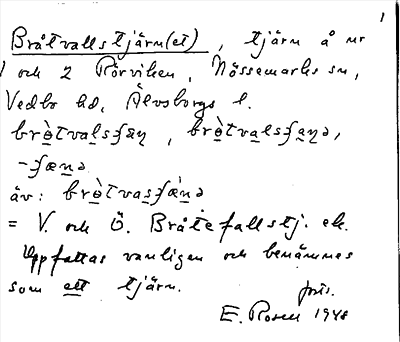 1
Bråtvallstjärn(et), tjärn å nr
1 och 2 Rörviken, Nössemarks sn,
Vedbo hd, Älvsborgs l.
brètvalsʃæṇ, brètvalsʃæṇə,
-ʃæṇə
äv: brètvasʃæ̀ṇə
= V. och Ö. Bråtefallstj. ek.
Uppfattas vanligen och benämnes
som ett tjärn.
E. Rosén 1948